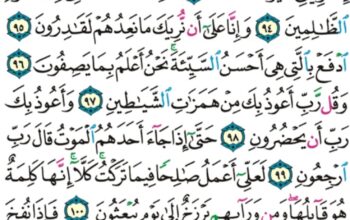 ٱلظَّٰلِمِينَ ٩٤ وَإِنَّا عَلَىٰٓ أَن نُّرِيَكَ مَا نَعِدُهُمْ لَقَٰدِرُونَ ٩٥
ٱدْفَعْ بِٱلَّتِى هِىَ أَحْسَنُ ٱلسَّيِّئَةَ ۚ نَحْنُ أَعْلَمُ بِمَا يَصِفُونَ ٩٦
وَقُل رَّبِّ أَعُوذُ بِكَ مِنْ هَمَزَٰتِ ٱلشَّيَٰطِينِ ٩٧ وَأَعُوذُ بِكَ
رَبِّ أَن يَحْضُرُونِ ٩٨ حَتَّىٰٓ إِذَا جَآءَ أَحَدَهُمُ ٱلْمَوْتُ قَالَ رَبِّ
ٱرْجِعُونِ ٩٩ لَعَلِّىٓ أَعْمَلُ صَٰلِحًا فِيمَا تَرَكْتُ ۚ كَلَّآ ۚ إِنَّهَا كَلِمَةٌ
هُوَ قَآئِلُهَا ۖ وَمِن وَرَآئِهِم بَرْزَخٌ إِلَىٰ يَوْمِ يُبْعَثُونَ ١٠٠ فَإِذَا نُفِخَ